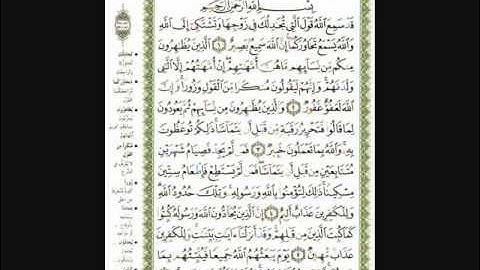 بِسْمِ ٱللَّهِ ٱلرَّحْمَٰنِ ٱلرَّحِيمِ
قَدْ سَمِعَ ٱللَّهُ قَوْلَ ٱلَّتِى تُجَٰدِلُكَ فِى زَوْجِهَا وَتَشْتَكِىٓ إِلَى ٱللَّهِ
وَٱللَّهُ يَسْمَعُ تَحَاوُرَكُمَآ إِنَّ ٱللَّهَ سَمِيعٌۢ بَصِيرٌ ١ ٱلَّذِينَ يُظَٰهِرُونَ
مِنكُم مِّن نِّسَآئِهِم مَّا هُنَّ أُمَّهَٰتِهِمْ إِنْ أُمَّهَٰتُهُمْ إِلَّا ٱلَّٰٓـِٔى
وَلَدْنَهُمْ وَإِنَّهُمْ لَيَقُولُونَ مُنكَرًا مِّنَ ٱلْقَوْلِ وَزُورًا وَإِنَّ
ٱللَّهَ لَعَفُوٌّ غَفُورٌ ٢ وَٱلَّذِينَ يُظَٰهِرُونَ مِن نِّسَآئِهِمْ ثُمَّ يَعُودُونَ
لِمَا قَالُوا۟ فَتَحْرِيرُ رَقَبَةٍ مِّن قَبْلِ أَ يَتَمَآسَّا ذَٰلِكُمْ تُوعَظُونَ
بِهِۦ وَٱللَّهُ بِمَا تَعْمَلُونَ خَبِيرٌ ٣ فَمَ لَّمْ يَجِدْ فَصِيَامُ شَهْرَيْنِ
مُتَتَابِعَيْنِ مِن قَبْلِ أَ يَتَمَآسَّا فَمَ لَّمْ يَسْتَطِعْ فَإِطْعَامُ سِتِّينَ
مِسْكِينًا ذَٰلِكَ لِتُؤْمِنُوا۟ بِٱللَّهِ وَرَسُولِهِۦ وَتِلْكَ حُدُودُ ٱللَّهِ
وَلِلْكَٰفِرِينَ عَذَابٌ أَلِيمٌ ٤ إِنَّ ٱلَّذِينَ يُحَآدُّونَ ٱللَّهَ وَرَسُولَهُۥ كُبِتُوا۟
كَمَا كُبِتَ ٱلَّذِينَ مِن قَبْلِهِمْ وَقَدْ أَنزَلْنَآ ءَايَٰتٍۭ بَيِّنَٰتٍ وَلِلْكَٰفِرِينَ
عَذَابٌ مُّهِينٌ ٥ يَوْمَ يَبْعَثُهُمُ ٱللَّهُ جَمِيعًا فَيُنَبِّئُهُم بِمَا